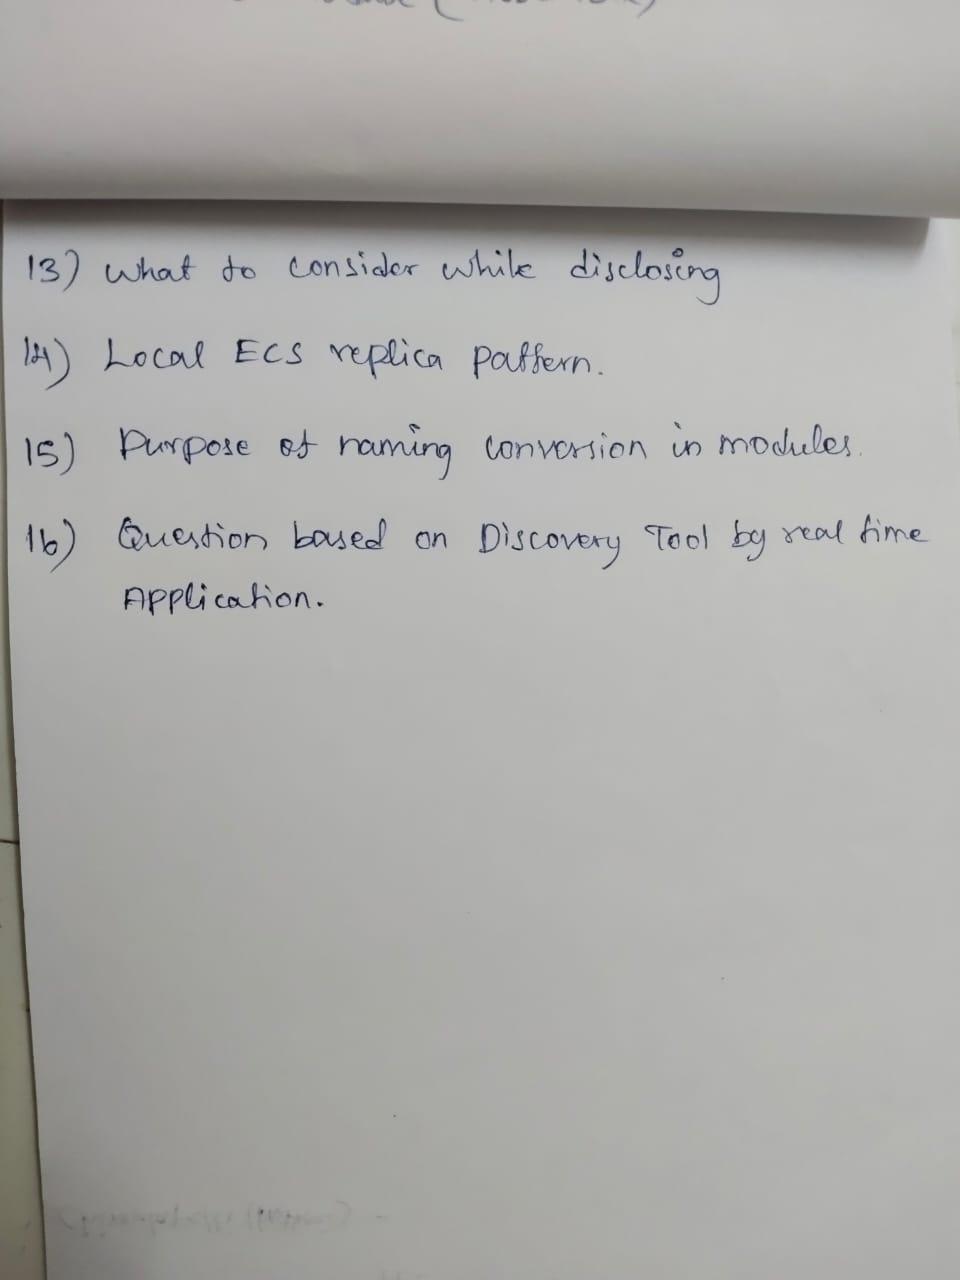 13) What to consider while disclosing
14) Local ECS replica pattern.
15) Purpose of naming conversion in modules.
16) Question based on Discovery Tool by real time
Application.